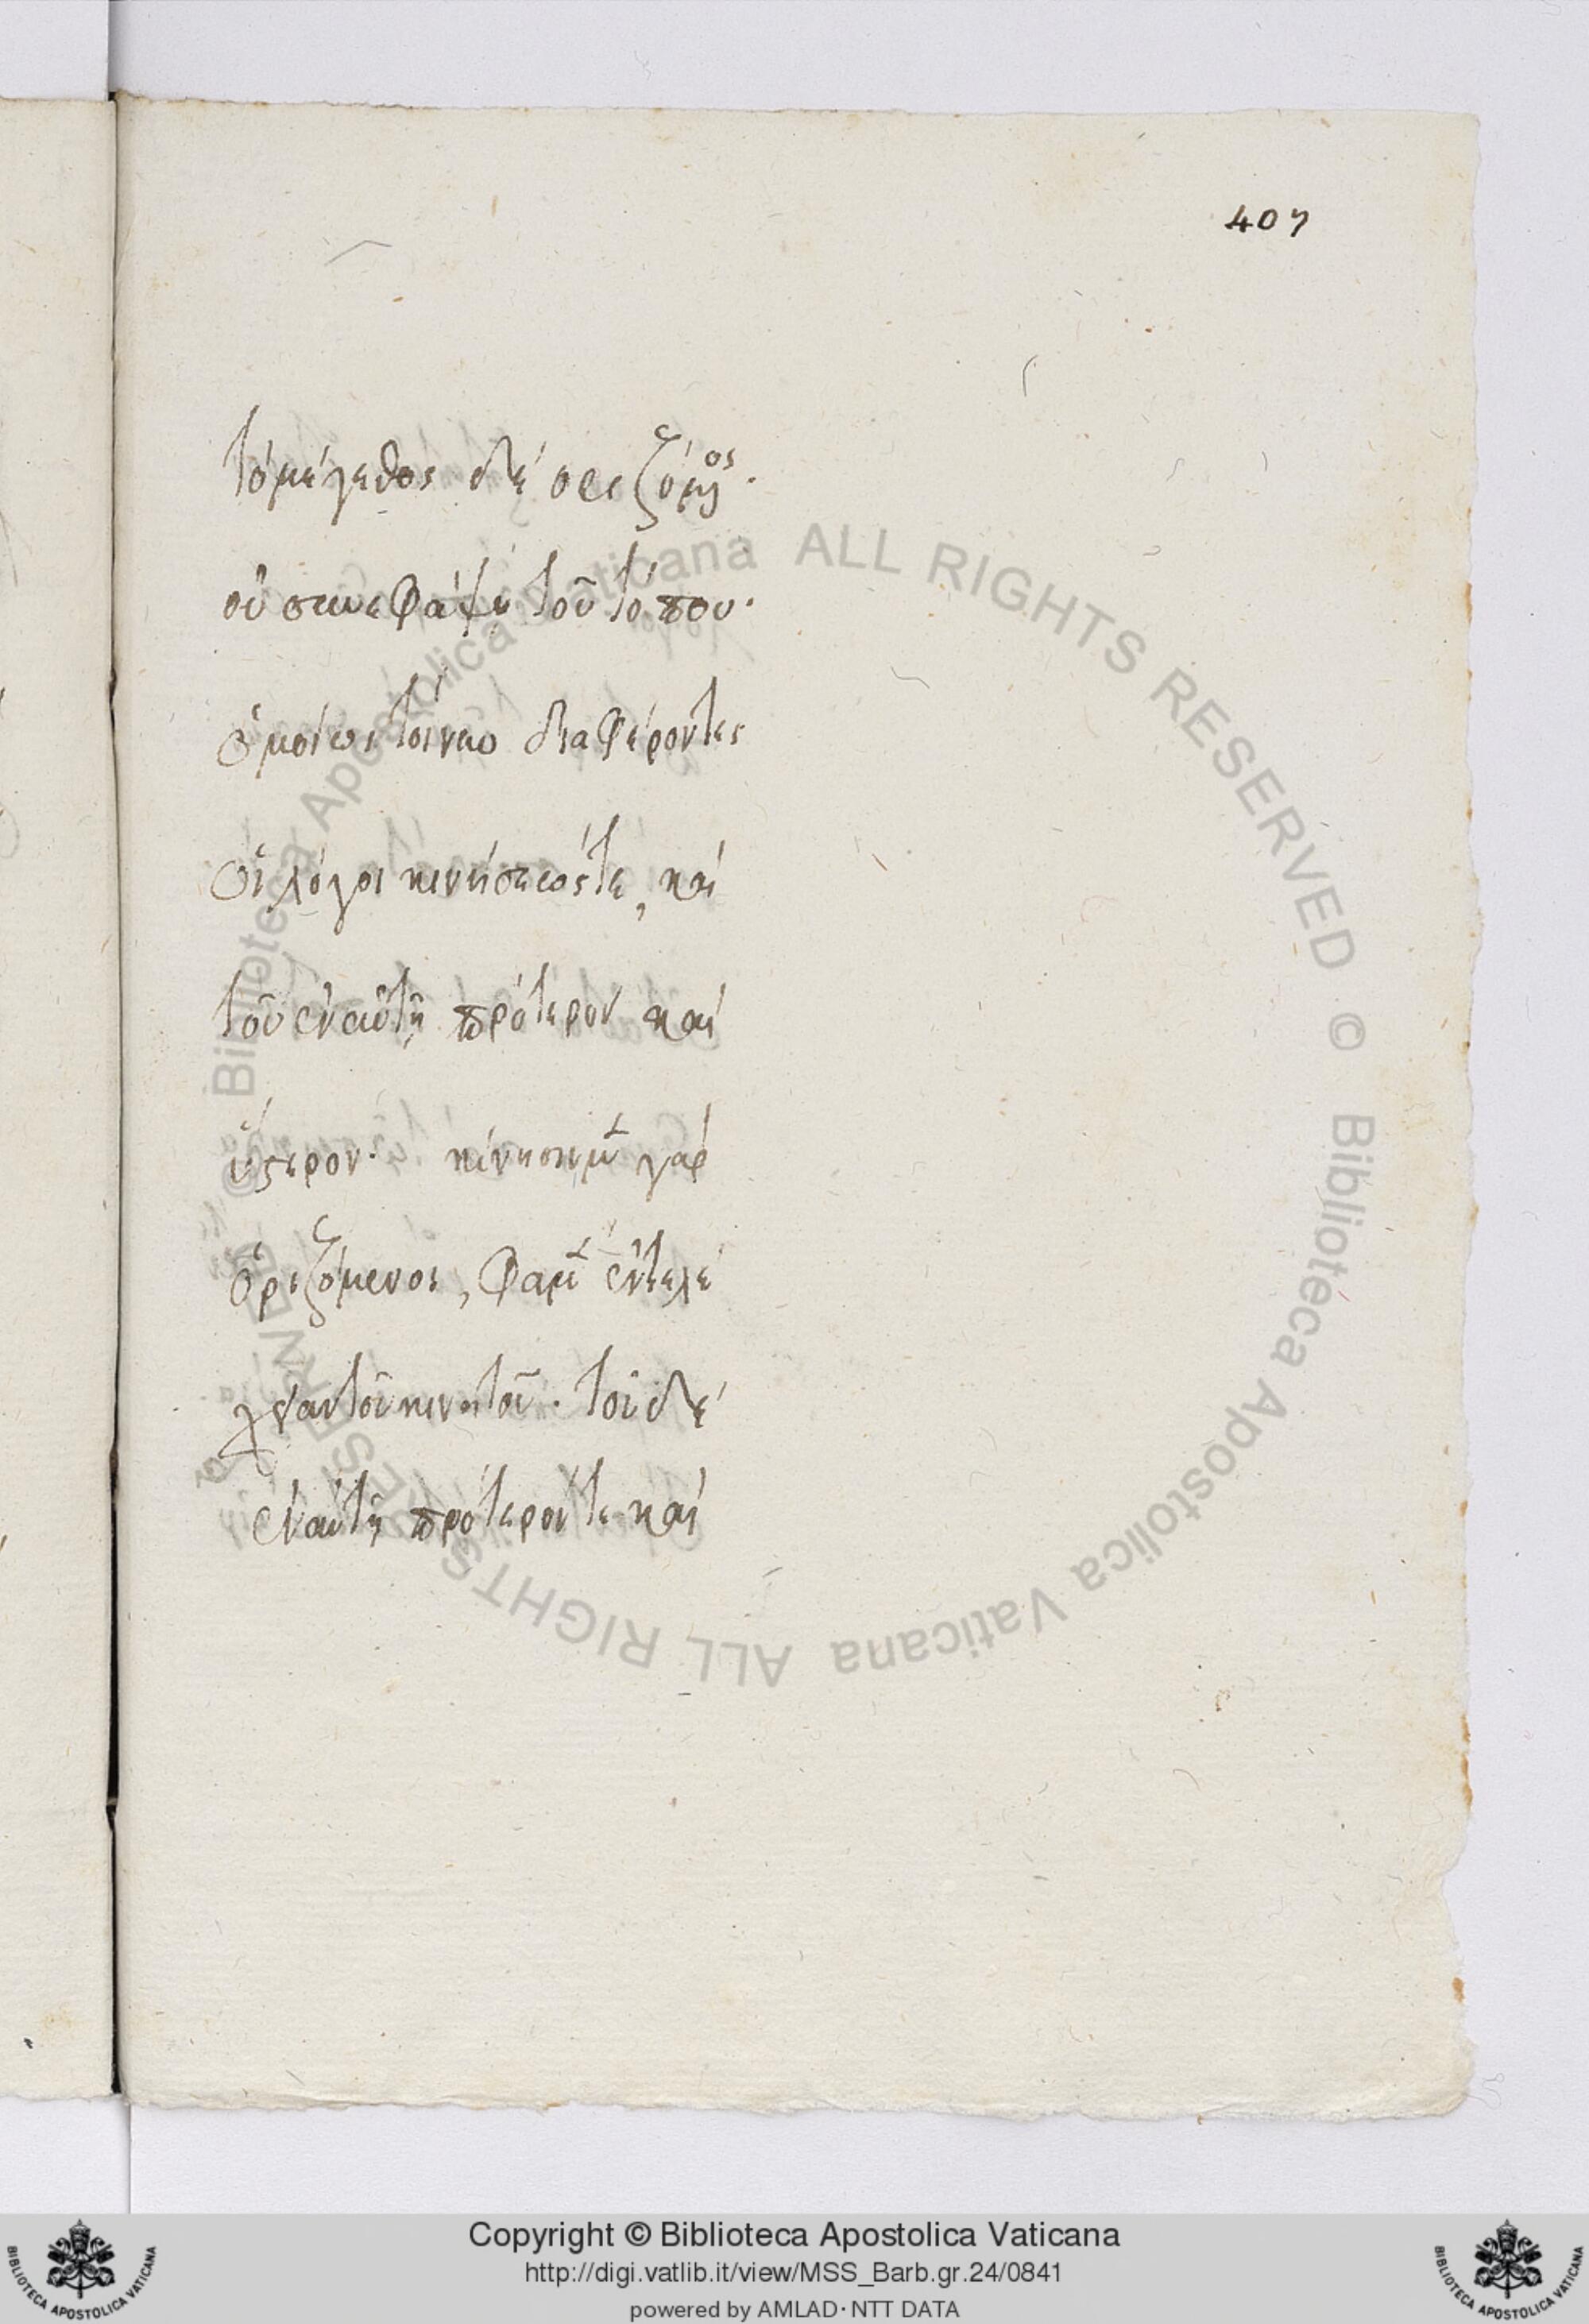 407
τὸ μέγεθος δὲ ὁριζόμενος.
οὐ συνεφάψη τοῦ τόπου.
ὁμοίως τοίνυν διαφέροντες
οἱ λόγοι κινήσεώς τε, καὶ
τοῦ ἐν αὐτῇ πρότερον καὶ
ὕστερον. κίνησιν μὲν γὰρ
ὁριζόμενοι, φαμὲν ἐντελέ
χειαν τοῦ κινητοῦ. τοῦ δὲ
ἐν αὐτῇ πρότερόν τε καὶ
© Biblioteca Apostolica Vaticana ALL RIGHTS RESERVED © Biblioteca Apostolica Vaticana ALL RIGHTS RESERVED
Copyright © Biblioteca Apostolica Vaticana
http://digi.vatlib.it/view/MSS_Barb.gr.24/0841
powered by AMLAD·NTT DATA
BIBLIOTECA APOSTOLICA VATICANA
BIBLIOTECA APOSTOLICA VATICANA